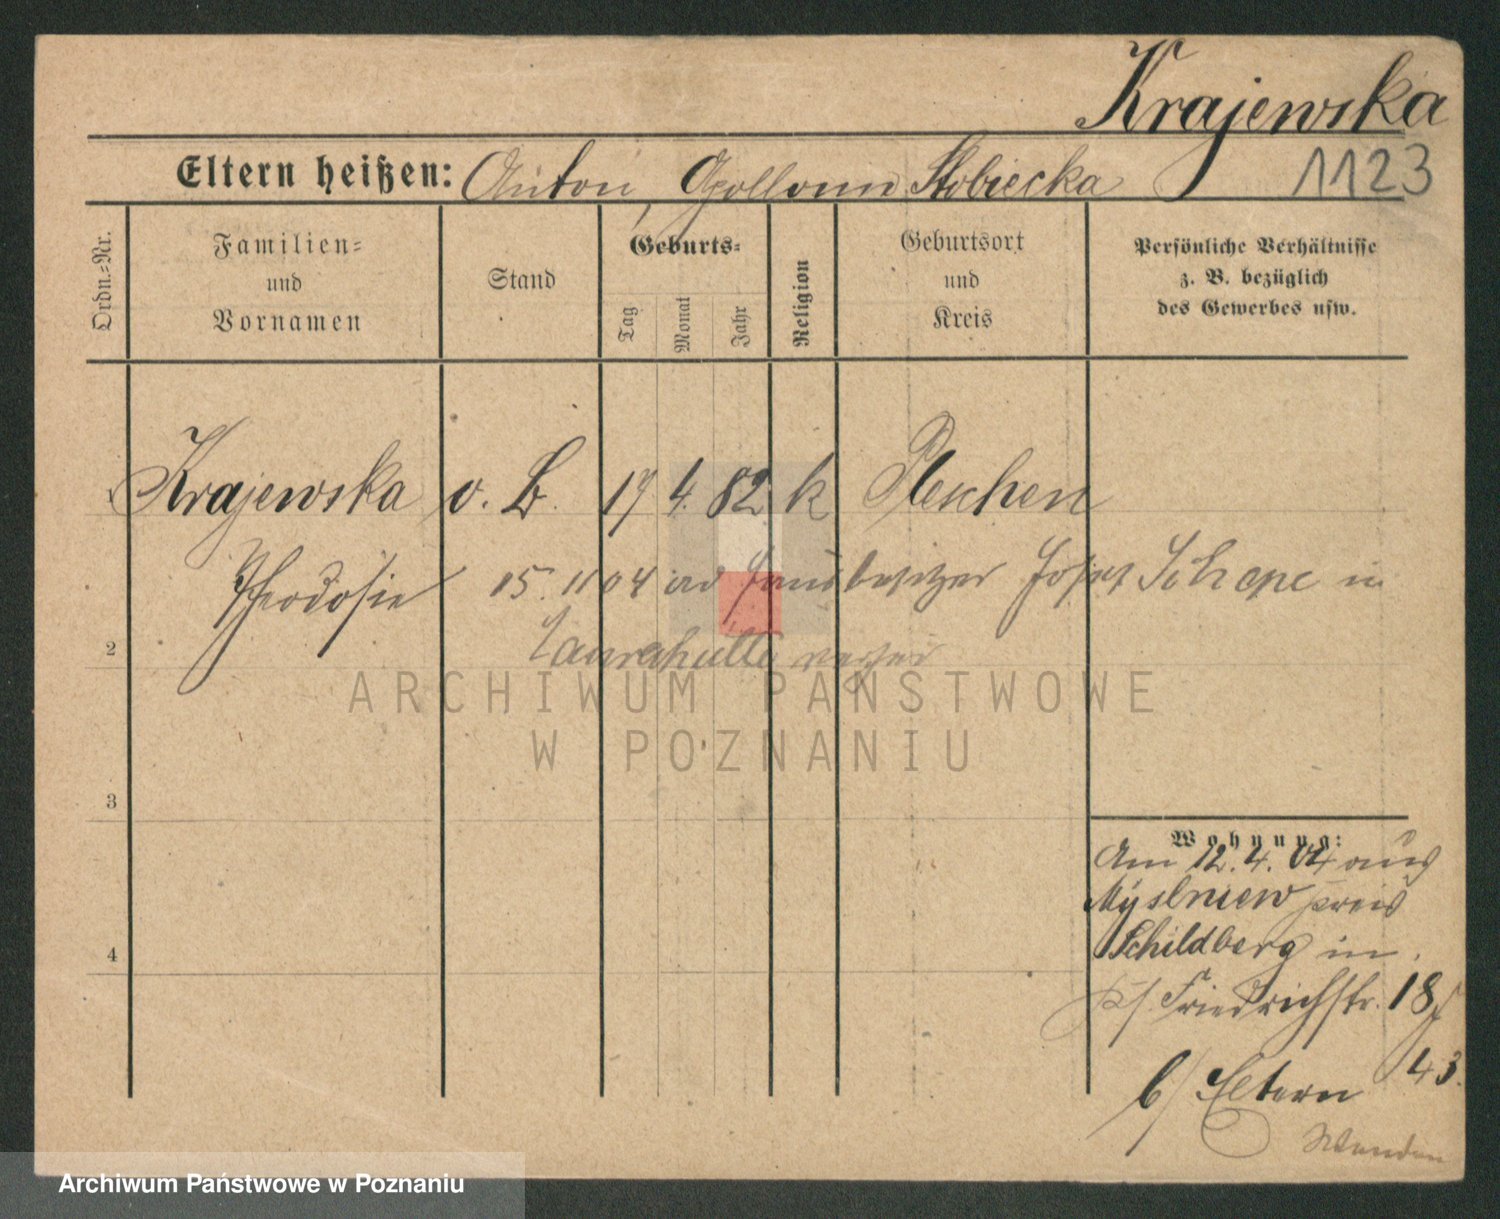 Krajewska
1123
Eltern heißen: Anton, Apollonia Stobiecka
Ordn.=Nr.
Familien=
und
Vornamen
Stand
Geburts=
Tag
Monat
Jahr
Religion
Geburtsort
und
Kreis
Persönliche Verhältnisse
z. B. bezüglich
des Gewerbes usw.
1 Krajewska o. B. 17 4. 82 k Pleschen
Theodosie 15. 11 04 Hausbesitzer Josef in
2
Laurahütte
3
4
Wohnung:
Am 12.4.04 aus
Myslniew Kreis
Schildberg in
Friedrichstr. 18
43.
b/ Eltern
Wenden
ARCHIWUM PAŃSTWOWE
W POZNANIU
Archiwum Państwowe w Poznaniu